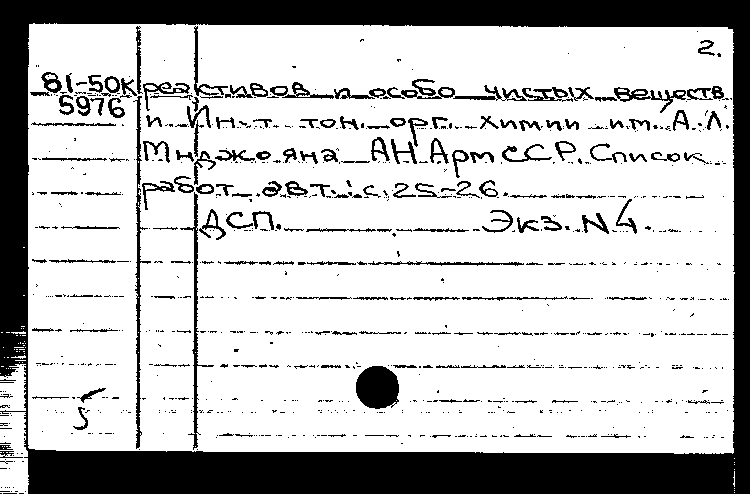 2.
81-50К реактивов и особо чистых веществ
5976 и Ин-т тон. орг. химии им. А.Л.
Мнджояна АН АрмССР. Список
работ авт.: с. 25-26.
ДСП. Экз. N4.
5